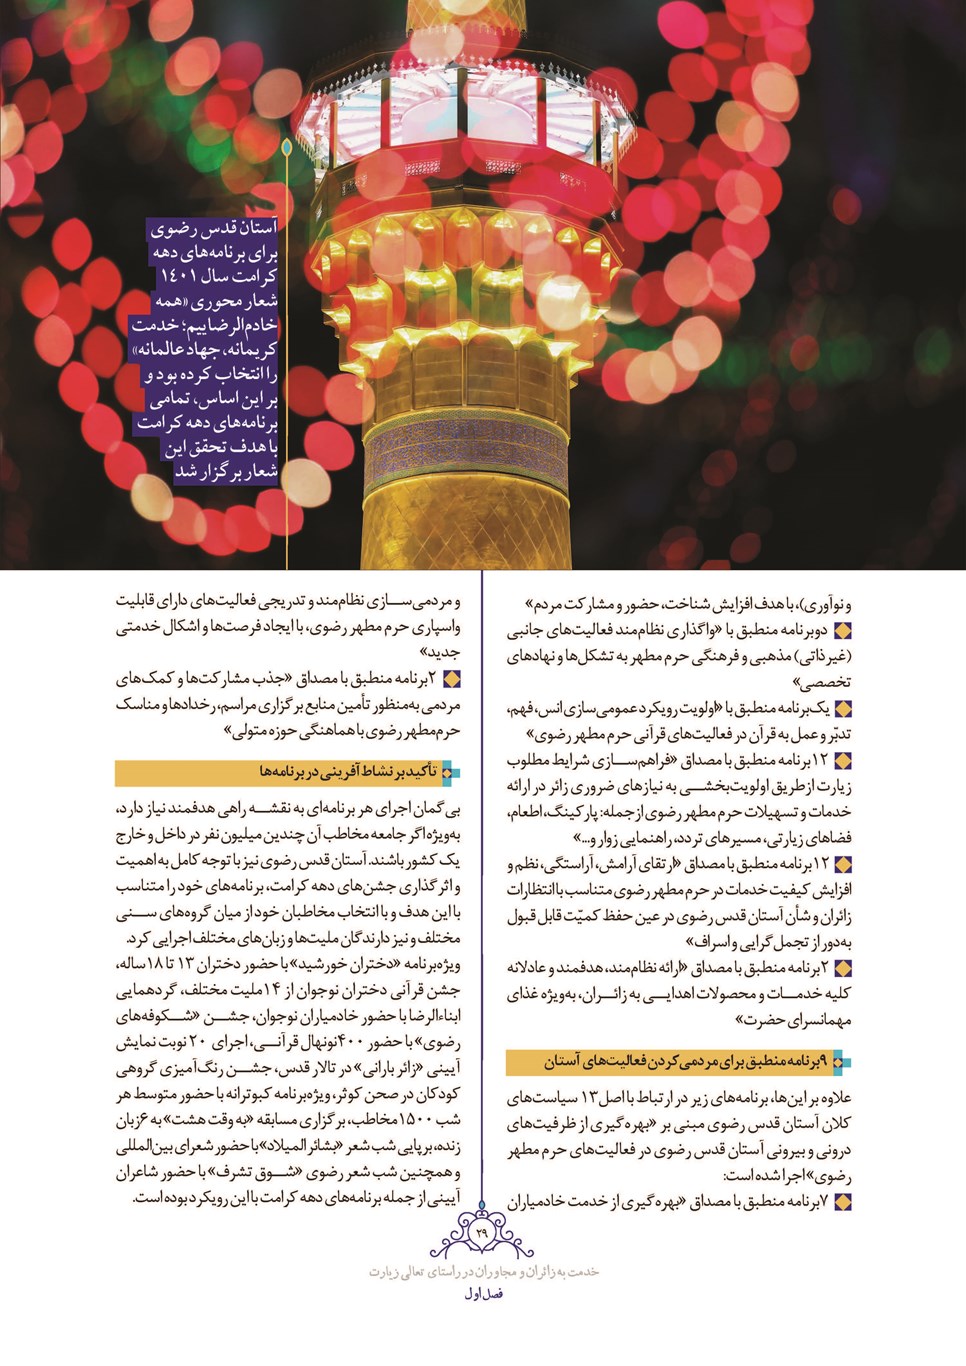 آستان قدس رضوی
برای برنامه‌های دهه
کرامت سال ۱۴۰۱
شعار محوری «همه
خادم‌الرضاییم؛ خدمت
کریمانه، جهاد عالمانه»
را انتخاب کرده بود و
بر این اساس، تمامی
برنامه‌های دهه کرامت
با هدف تحقق این
شعار برگزار شد
و نوآوری)، با هدف افزایش شناخت، حضور و مشارکت مردم»
دو برنامه منطبق با «واگذاری نظام‌مند فعالیت‌های جانبی
(غیرذاتی) مذهبی و فرهنگی حرم مطهر به تشکل‌ها و نهادهای
تخصصی»
یک برنامه منطبق با «اولویت رویکرد عمومی‌سازی انس، فهم،
تدبّر و عمل به قرآن در فعالیت‌های قرآنی حرم مطهر رضوی»
۱۲ برنامه منطبق با مصداق «فراهم‌سازی شرایط مطلوب
زیارت از طریق اولویت‌بخشی به نیازهای ضروری زائر در ارائه
خدمات و تسهیلات حرم مطهر رضوی ازجمله: پارکینگ، اطعام،
فضاهای زیارتی، مسیرهای تردد، راهنمایی زوار و...»
۱۲ برنامه منطبق با مصداق «ارتقای آرامش، آراستگی، نظم و
افزایش کیفیت خدمات در حرم مطهر رضوی متناسب با انتظارات
زائران و شأن آستان قدس رضوی در عین حفظ کمیّت قابل قبول
به‌دور از تجمل‌گرایی و اسراف»
۲ برنامه منطبق با مصداق «ارائه نظام‌مند، هدفمند و عادلانه
کلیه خدمات و محصولات اهدایی به زائران، به‌ویژه غذای
مهمانسرای حضرت»
۹ برنامه منطبق برای مردمی کردن فعالیت‌های آستان
علاوه بر این‌ها، برنامه‌های زیر در ارتباط با اصل ۱۳ سیاست‌های
کلان آستان قدس رضوی مبنی بر «بهره‌گیری از ظرفیت‌های
درونی و بیرونی آستان قدس رضوی در فعالیت‌های حرم مطهر
رضوی» اجرا شده است:
۷ برنامه منطبق با مصداق «بهره‌گیری از خدمت خادمیاران
و مردمی‌سازی نظام‌مند و تدریجی فعالیت‌های دارای قابلیت
واسپاری حرم مطهر رضوی، با ایجاد فرصت‌ها و اشکال خدمتی
جدید»
۲ برنامه منطبق با مصداق «جذب مشارکت‌ها و کمک‌های
مردمی به‌منظور تأمین منابع برگزاری مراسم، رخدادها و مناسک
حرم مطهر رضوی با هماهنگی حوزه متولی»
تأکید بر نشاط آفرینی در برنامه‌ها
بی‌گمان اجرای هر برنامه‌ای به نقشه راهی هدفمند نیاز دارد،
به‌ویژه اگر جامعه مخاطب آن چندین میلیون نفر در داخل و خارج
یک کشور باشند. آستان قدس رضوی نیز با توجه کامل به اهمیت
و اثرگذاری جشن‌های دهه کرامت، برنامه‌های خود را متناسب
با این هدف و با انتخاب مخاطبان خود از میان گروه‌های سنی
مختلف و نیز دارندگان ملیت‌ها و زبان‌های مختلف اجرایی کرد.
ویژه‌برنامه «دختران خورشید» با حضور دختران ۱۳ تا ۱۸ ساله،
جشن قرآنی دختران نوجوان از ۱۴ ملیت مختلف، گردهمایی
ابناءالرضا با حضور خادمیاران نوجوان، جشن «شکوفه‌های
رضوی» با حضور ۴۰۰ نونهال قرآنی، اجرای ۲۰ نوبت نمایش
آیینی «زائر بارانی» در تالار قدس، جشن رنگ‌آمیزی گروهی
کودکان در صحن کوثر، ویژه‌برنامه کبوترانه با حضور متوسط هر
شب ۱۵۰۰ مخاطب، برگزاری مسابقه «به وقت هشت» به ۶ زبان
زنده، برپایی شب شعر «بشائر المیلاد» با حضور شعرای بین‌المللی
و همچنین شب شعر رضوی «شوق تشرف» با حضور شاعران
آیینی از جمله برنامه‌های دهه کرامت با این رویکرد بوده است.
۲۹
خدمت به زائران و مجاوران در راستای تعالی زیارت
فصل اول